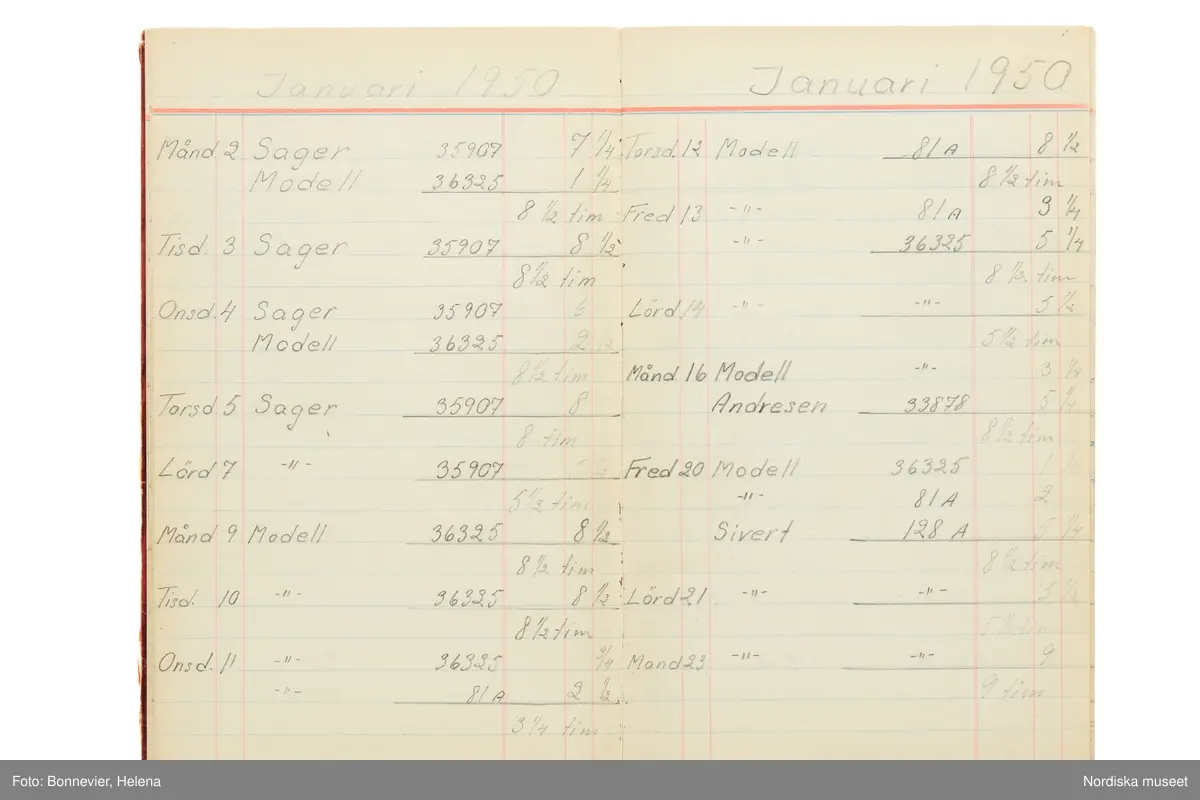 Januari 1950
Månd 2 Sager 35907 7 1/4
Modell 36325 1 1/4
8 1/2 tim
Tisd. 3 Sager 35907 8 1/2
8 1/2 tim
Onsd. 4 Sager 35907 6
Modell 36325 2 1/2
8 1/2 tim
Torsd 5 Sager 35907 8
8 tim
Lörd 7 -"- 35907 5 1/2
5 1/2 tim
Månd 9 Modell 36325 8 1/2
8 1/2 tim
Tisd. 10 -"- 36325 8 1/2
8 1/2 tim
Onsd. 11 -"- 36325 3/4
-"- 81 A 2 1/2
3 1/4 tim
Januari 1950
Torsd. 12 Modell 81 A 8 1/2
8 1/2 tim
Fred 13 -"- 81 A 3 1/4
-"- 36325 5 1/4
8 1/2 tim
Lörd 14 -"- -"- 5 1/2
5 1/2 tim
Månd. 16 Modell -"- 3 1/4
Andresen 33878 5 1/4
8 1/2 tim
Fred 20 Modell 36325 1 1/4
-"- 81 A 2
Sivert 128 A 5 1/4
8 1/2 tim
Lörd 21 -"- -"- 5 1/2
5 1/2 tim
Mand 23 -"- -"- 9
9 tim
Foto: Bonnevier, Helena
Nordiska museet